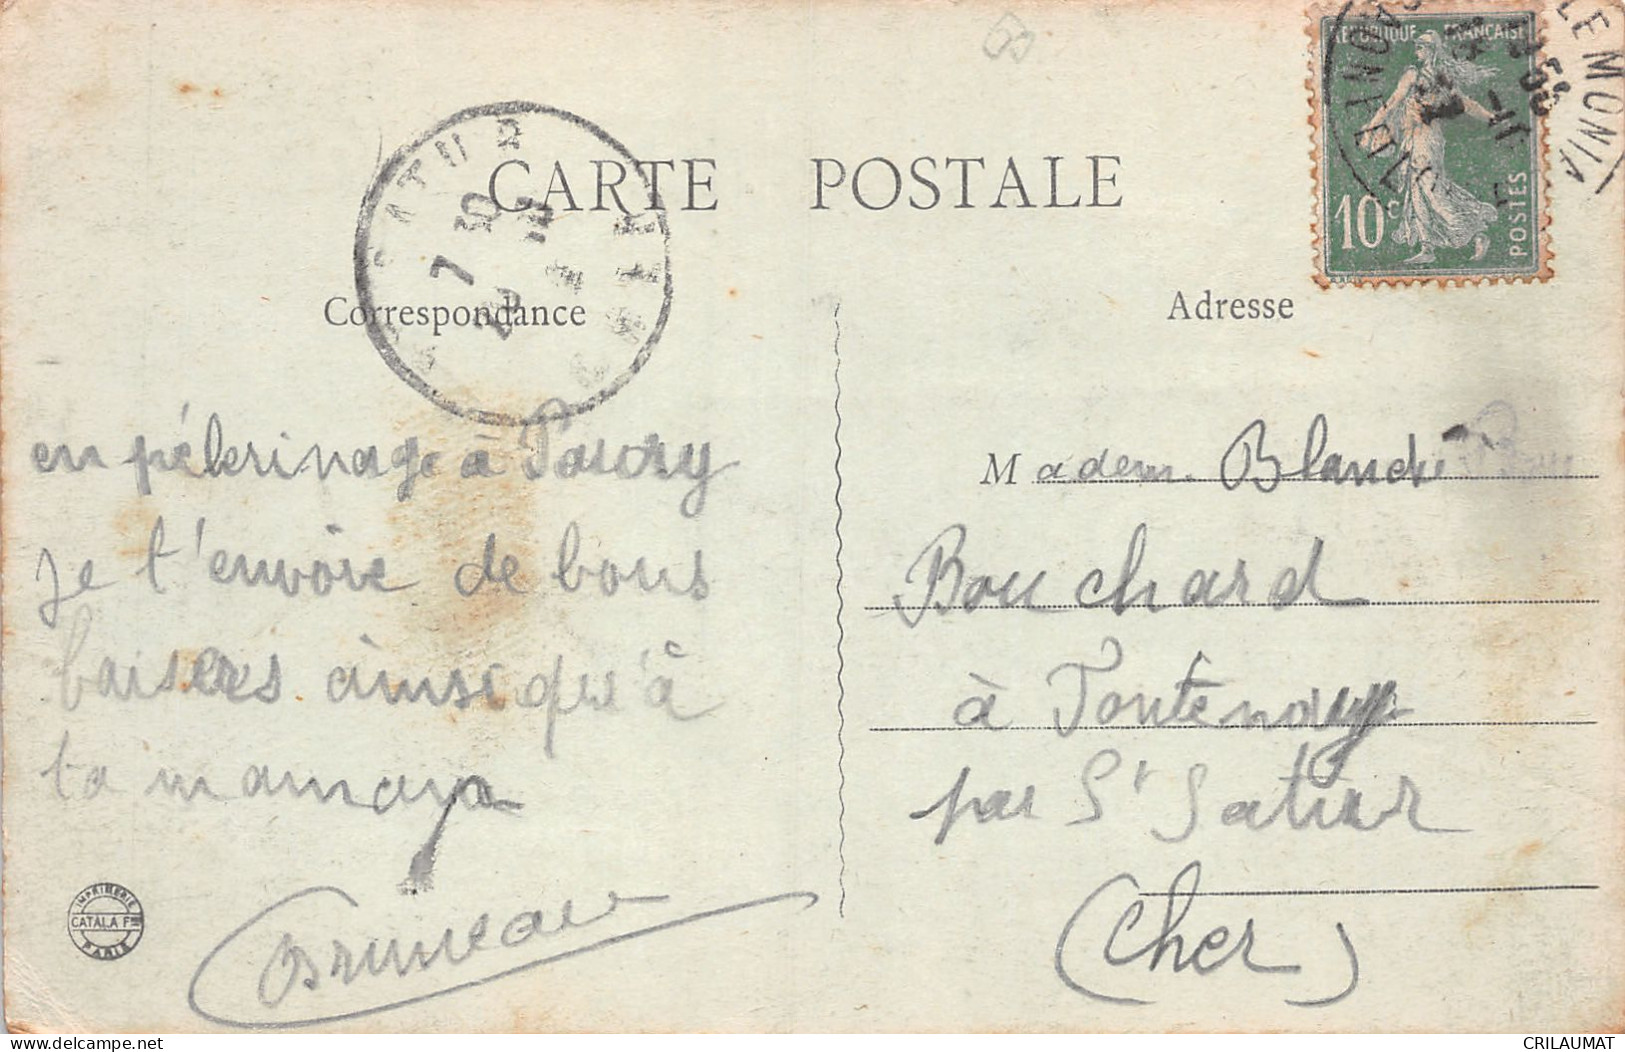 CARTE POSTALE
Correspondance
Adresse
REPUBLIQUE FRANÇAISE
10c
POSTES
LE MONIA
en pélerinage à
je t'envoie de bons
baisers ainsi qu'à
ta maman
Bruneau
Madem. Blanche
Bouchard
à Fontenay
par St Satur
(Cher)
IMPRIMERIE
CATALA Fres
PARIS
delcampe.net
CRILAUMAT